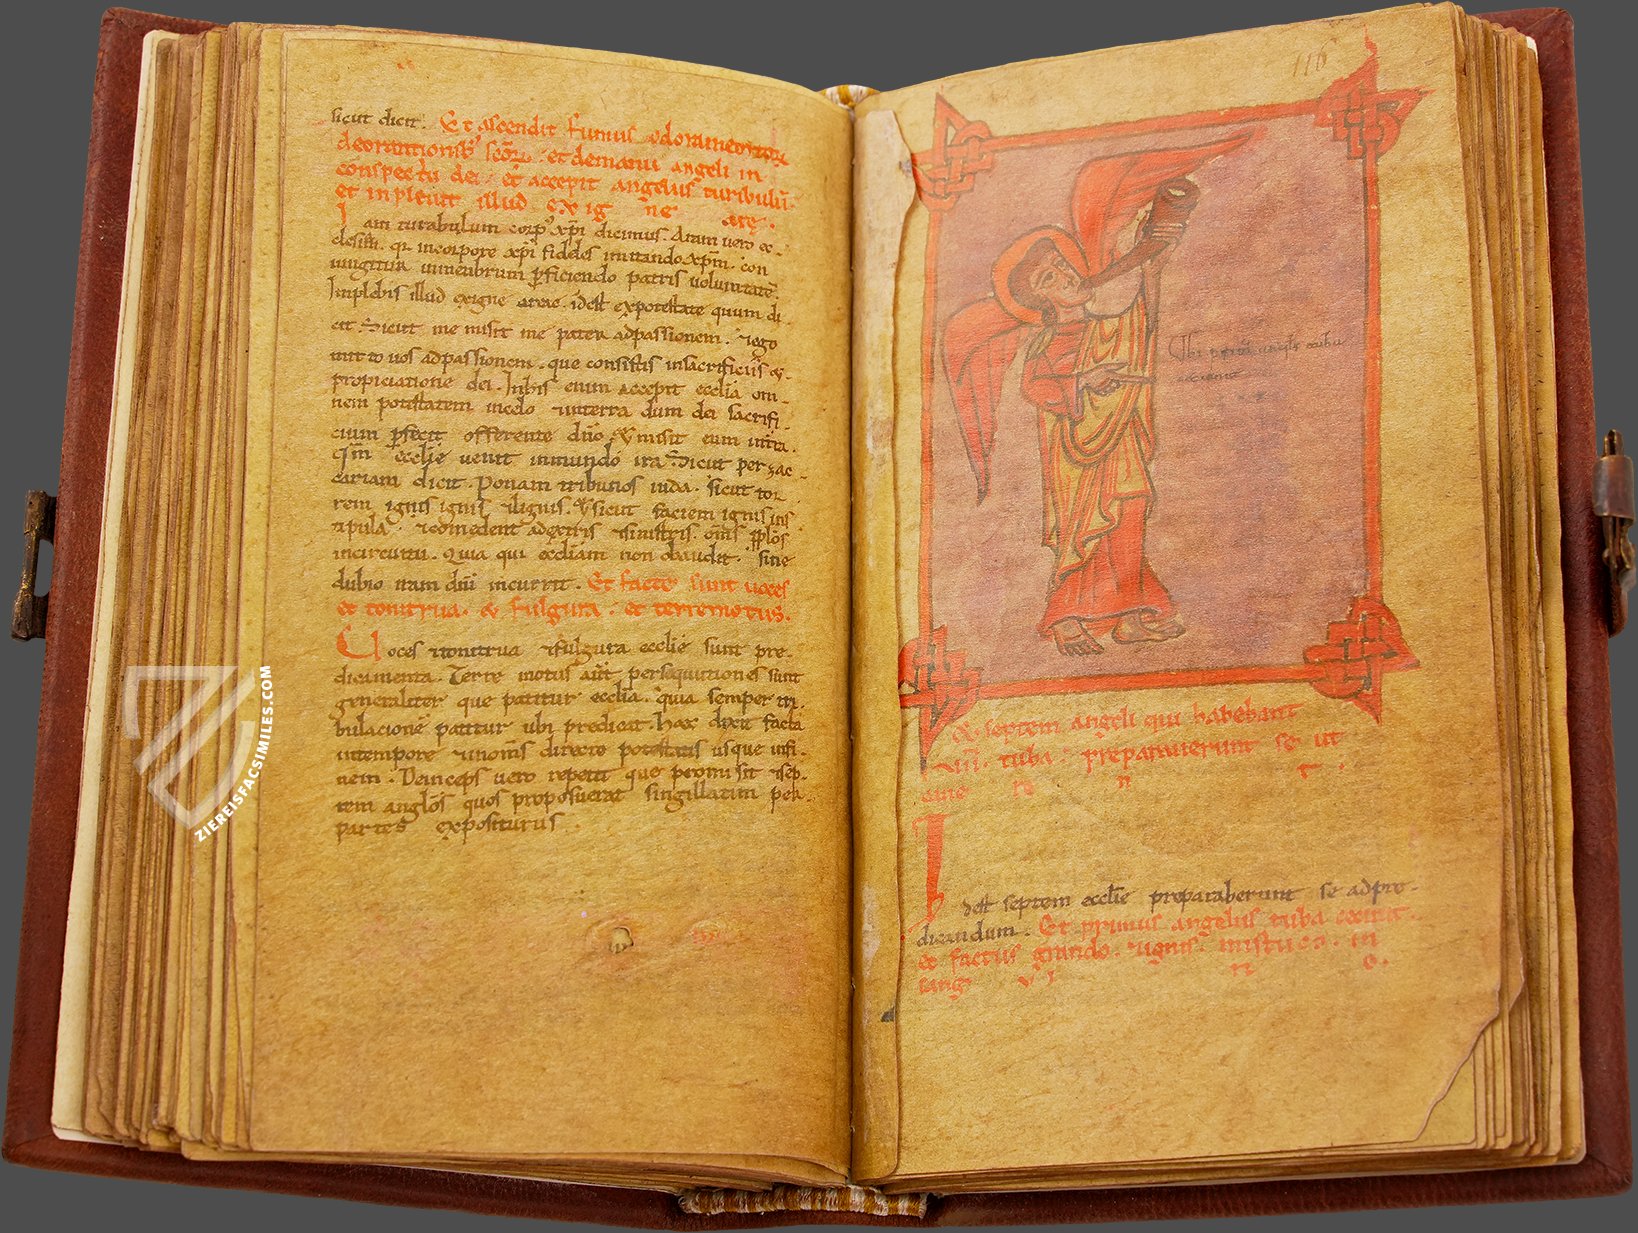 sicut dicit. Et ascendit fumus odoramentor
deorationib; scōr. et demanu angeli in
conspectu dei. et accepit angelus turibulū.
et inplevit illud. ex ig ne are.
I am turabulum corp' xp̄i dicimus. Aram vero ec-
clesiā. q incorpore xp̄i fideles imitando xp̄m. con
iungitur inmenbrum pficiendo patris voluntatē.
Implebis illud exigne arae. idest expotestate quum di
cit. Sicut me misit me pater adpassionem. et ego
mitto vos adpassionem. que consistis insacrificiis &
propiciatione dei. Inhis enim accepit ecclā om-
nem potestatem incelo et interra dum dei sacrifi-
cium pfecit offerente dn̄o. & misit eum intra.
qm̄ ecclie venit inmundo ira. Sicut per zac-
cariam dicit. Ponam tribunos iuda. sicut tor-
rem ignis ignis et lignis. & sicut faciem ignis ins
tipula. et comedent adextris et sinistris. om̄s pplōs
incircuitu. Quia qui eccliam non obaudit. sine
dubio iram dn̄i incurrit. Et facte sunt voces
et tonitrua. & fulgura. et terremotus.
Uoces et tonitrua et fulgura ecclie sunt pre-
dicamenta. Terre motus aūt persequutiones sunt
generaliter que patitur ecclia. quia semper tri-
bulacionē patitur ubi predicat. Hec dicit facta
intempore et inom̄s directo potestatis usque infi-
nem. Deinceps vero repetit que promisit et sep-
tem anglōs quos proposuerat singillatim per
partes expositurus.
116
Ubi primus angelus tuba
cecinit
& septem angeli qui habebant
VII. tuba. preparaverunt se ut
cane re n t.
Idest septem ecclie preparaberunt se adpre-
dicandum. Et primus angelus tuba cecinit
et factus grando. et ignis. mistus. in
sang v i n e.
ZIEREISFACSIMILES.COM